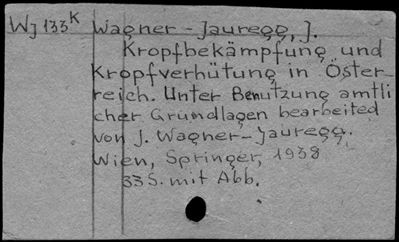 Wj 133K Wagner-Jauregg, J.
Kropfbekämpfung und
Kropfverhütung in Öster-
reich. Unter Benutzung amtli
cher Grundlagen bearbeited
von J. Wagner-Jauregg.
Wien, Springer, 1938
33 S. mit Abb.